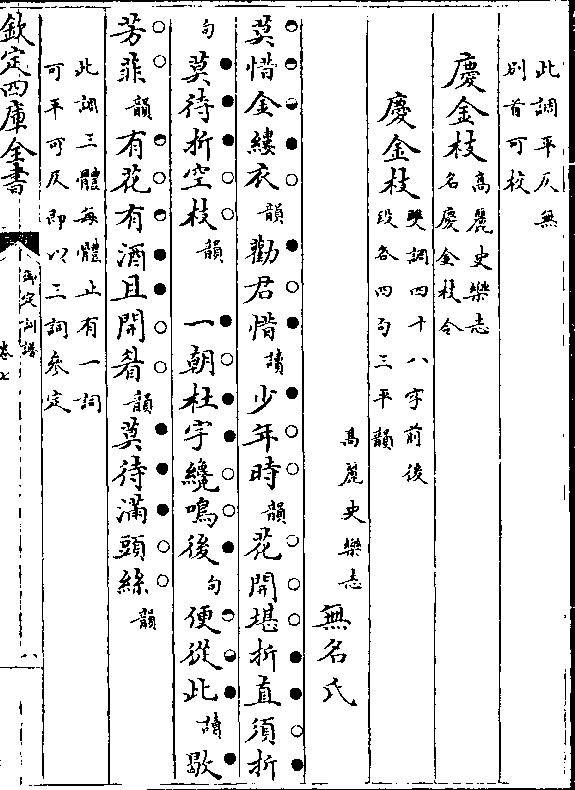 此調平仄無
别首可校
慶金枝
髙麗史樂志
名慶金枝令
慶金枝
雙調四十八字前後
段各四句三平韻
髙麗史樂志
無名氏
莫惜金縷衣韻勸君惜讀少年時韻花開堪折直須折
句莫待折空枝韻 一朝杜宇纔鳴後句便從此讀歇
芳菲韻有花有酒且開眉韻莫待滿頭絲韻
此調三體每體止有一詞
可平可仄即以三詞參定
欽定四庫全書
御定詞譜
卷七
八